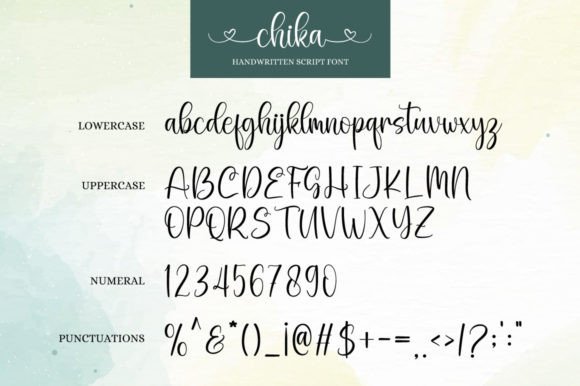 chika
HANDWRITTEN SCRIPT FONT
LOWERCASE abcdefghijklmnopqrstuvwxyz
UPPERCASE ABCDEFGHIJKLMN
OPQRSTUVWXYZ
NUMERAL 1234567890
PUNCTUATIONS %^&*()_¡@#$+-=,.<>/?;':"